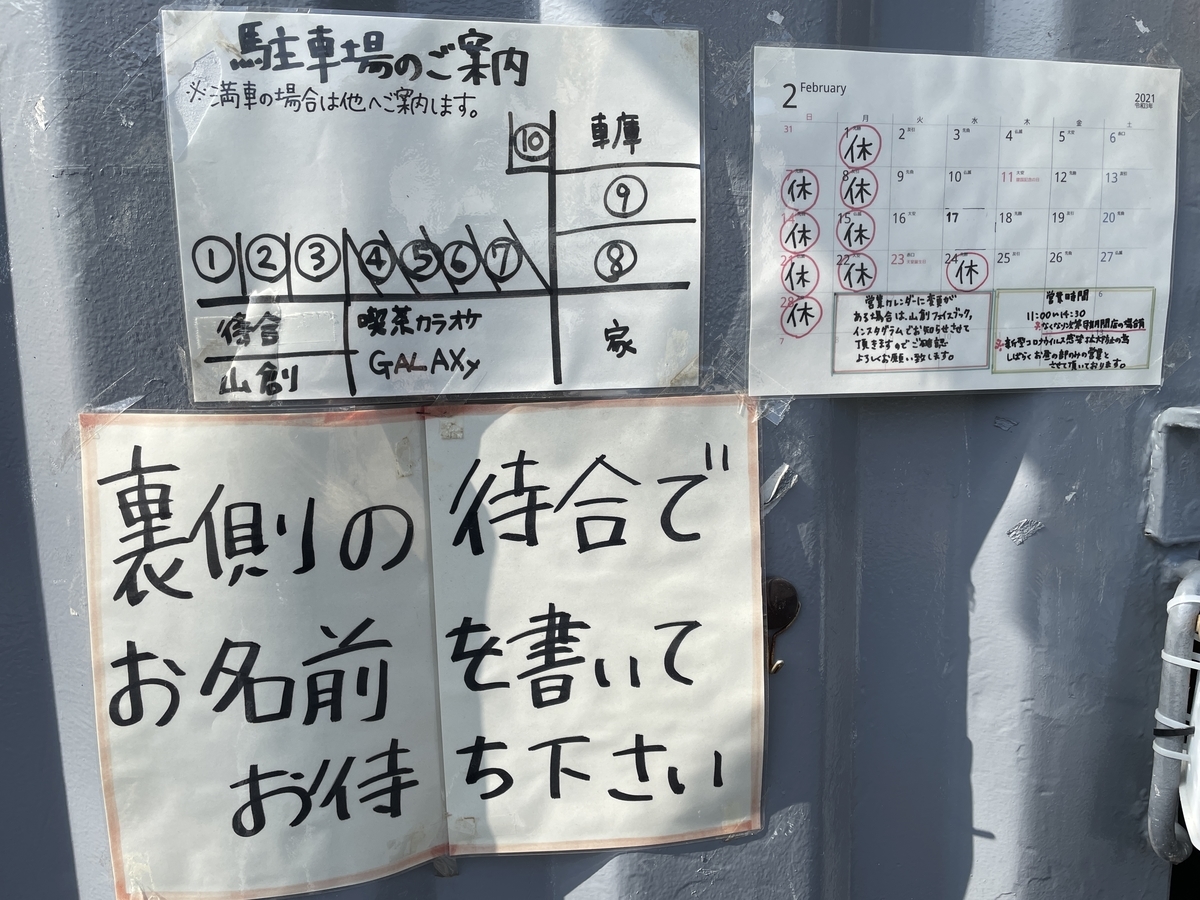 駐車場のご案内
※満車の場合は他へご案内します。
⑩ 車庫
⑨
① ② ③ ④ ⑤ ⑥ ⑦ ⑧
待合 喫茶カラオケ 家
山創 GALAXy
2 February 2021
令和3年
日 月 火 水 木 金 土
31 1 休 2 3 4 5 6
7 休 8 休 9 10 11 12 13
14 休 15 休 16 17 18 19 20
21 休 22 休 23 24 休 25 26 27
28 休 6
7
営業カレンダーに変更が
ある場合は、山創フェイスブック,
インスタグラムでお知らせさせて
頂きますのでご確認
よろしくお願い致します。
営業時間
11:00〜14:30
※新型コロナウイルス感染拡大防止の為
しばらくお昼の部のみの営業と
させて頂いております。
裏側の待合で
お名前を書いて
お待ち下さい